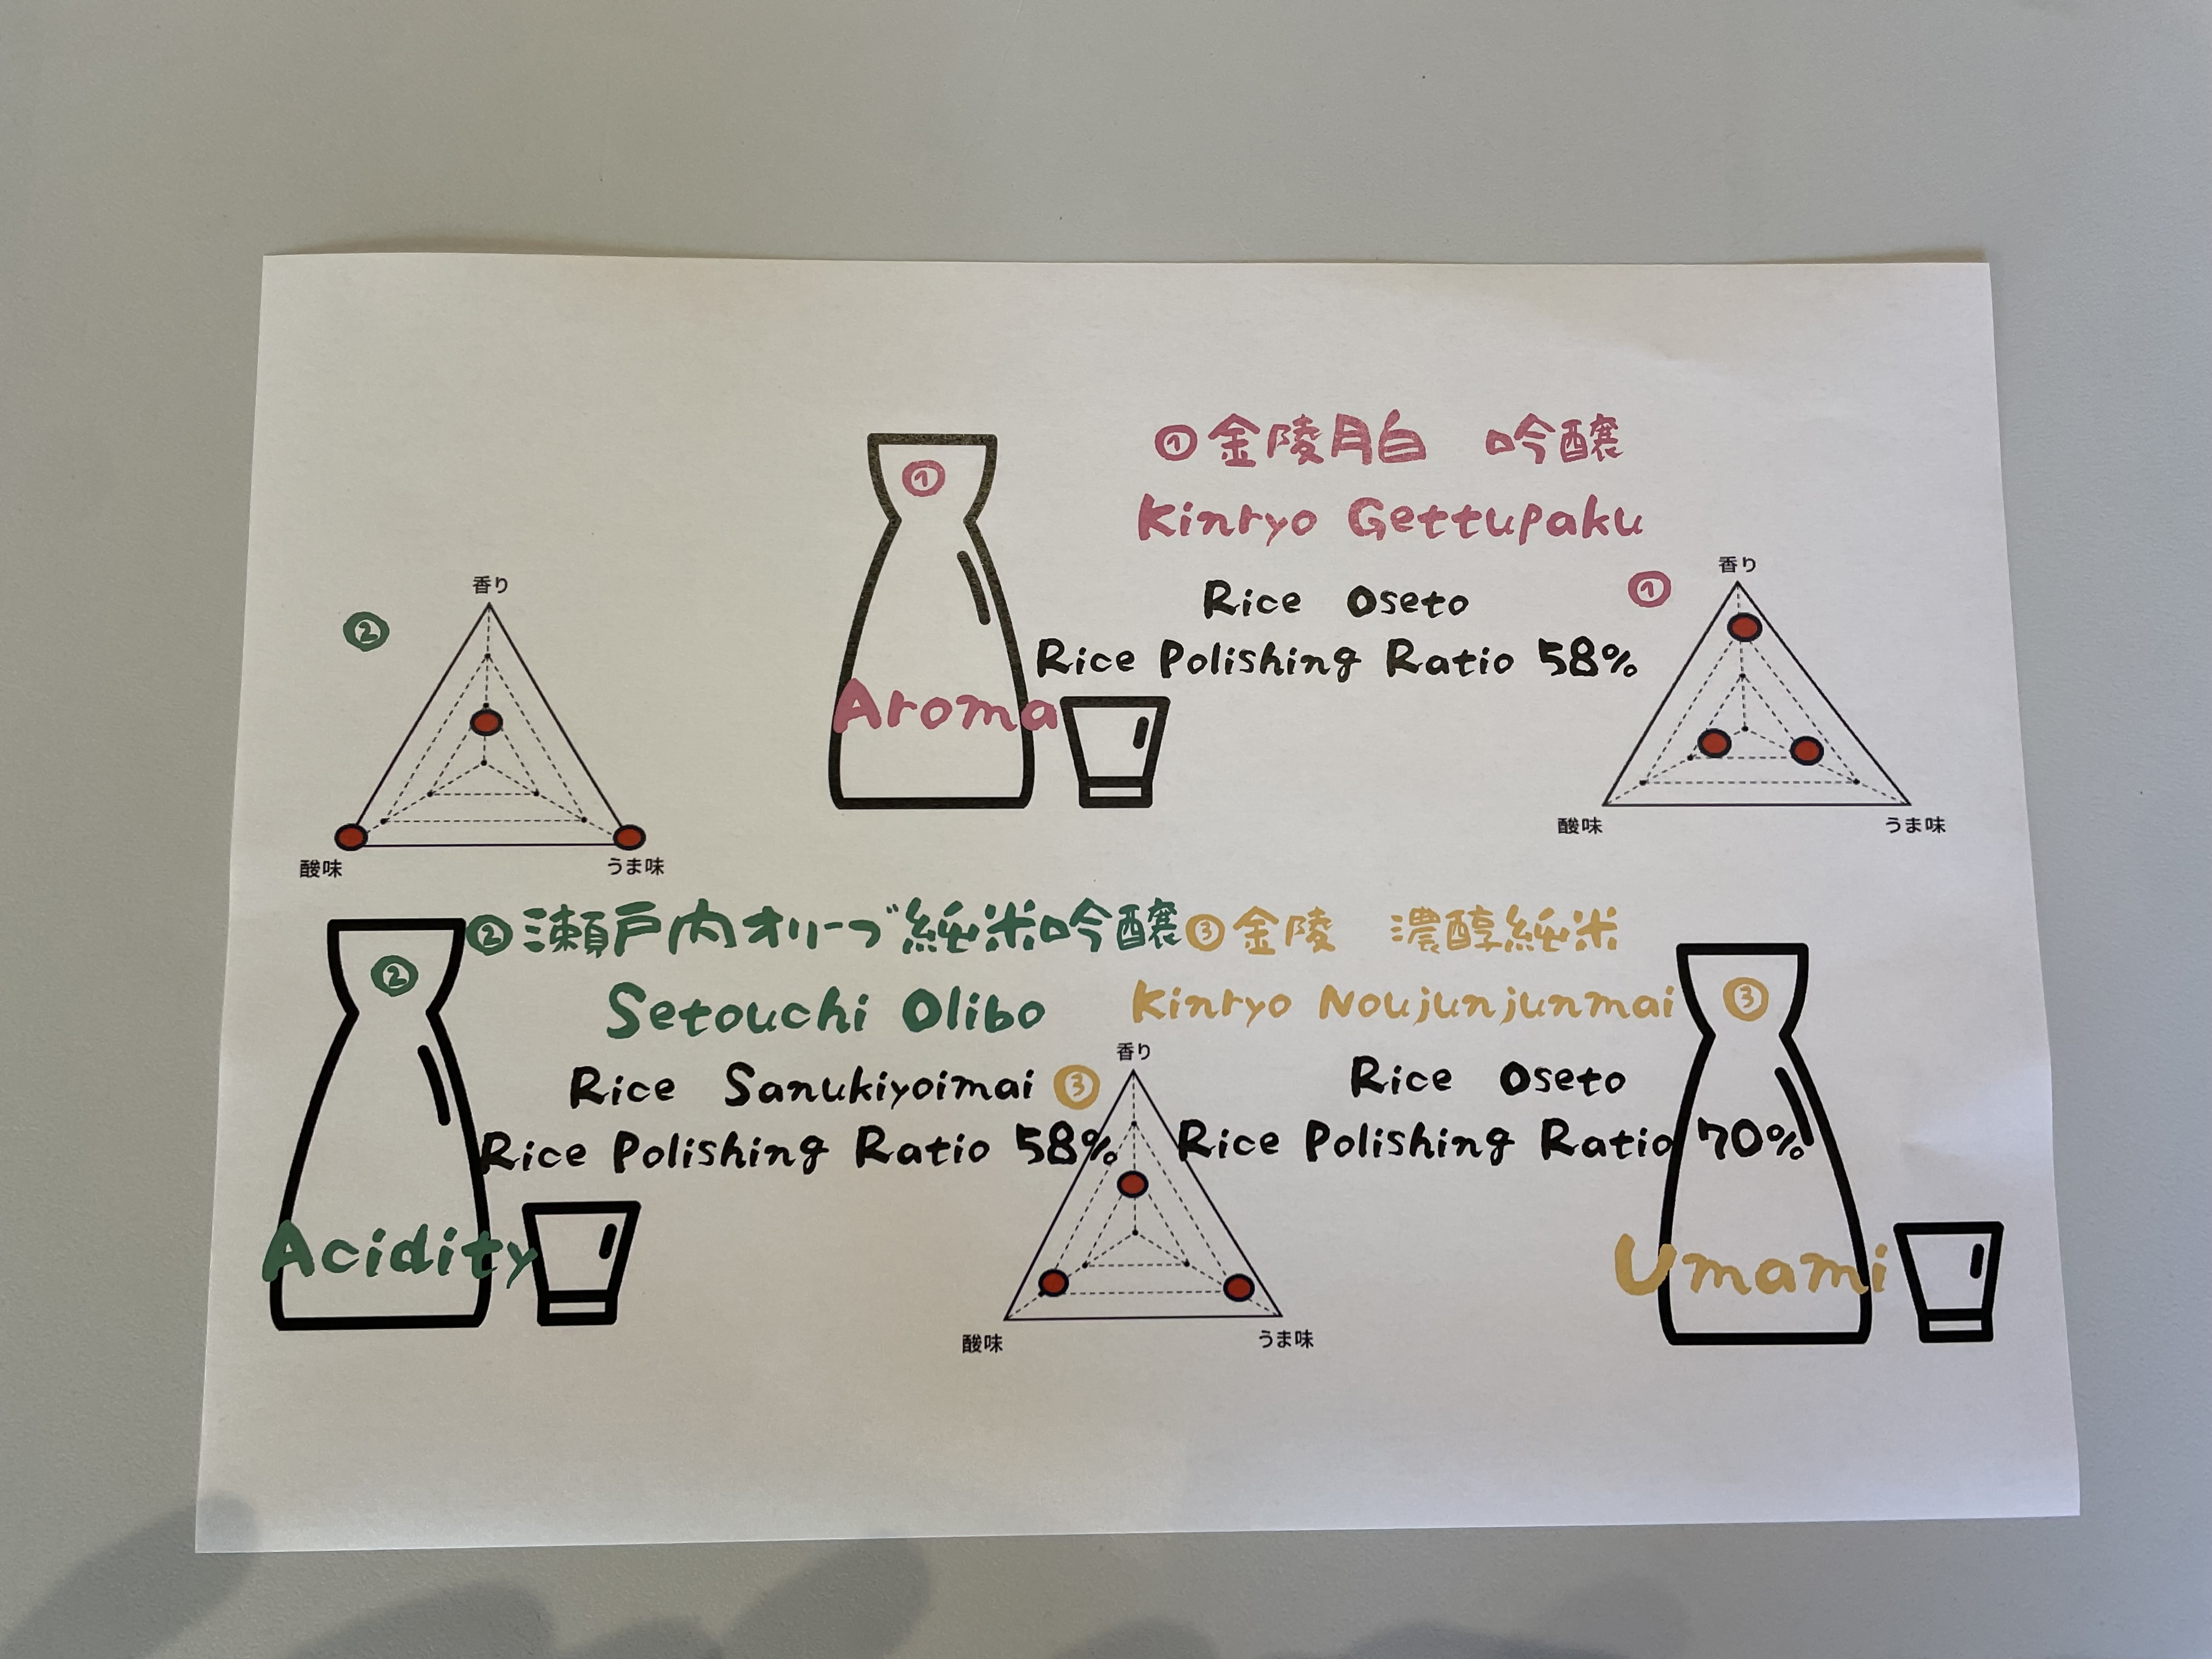 ①
①金陵月白 吟醸
Kinryo Gettupaku
Rice Oseto
Rice Polishing Ratio 58%
Aroma
①
香り
酸味
うま味
②
香り
酸味
うま味
②
②瀬戸内オリーブ純米吟醸
Setouchi Olibo
Rice Sanukiyoimai
Rice Polishing Ratio 58%
Acidity
③金陵 濃醇純米
Kinryo Noujunjunmai
Rice Oseto
Rice Polishing Ratio 70%
③
Umami
③
香り
酸味
うま味